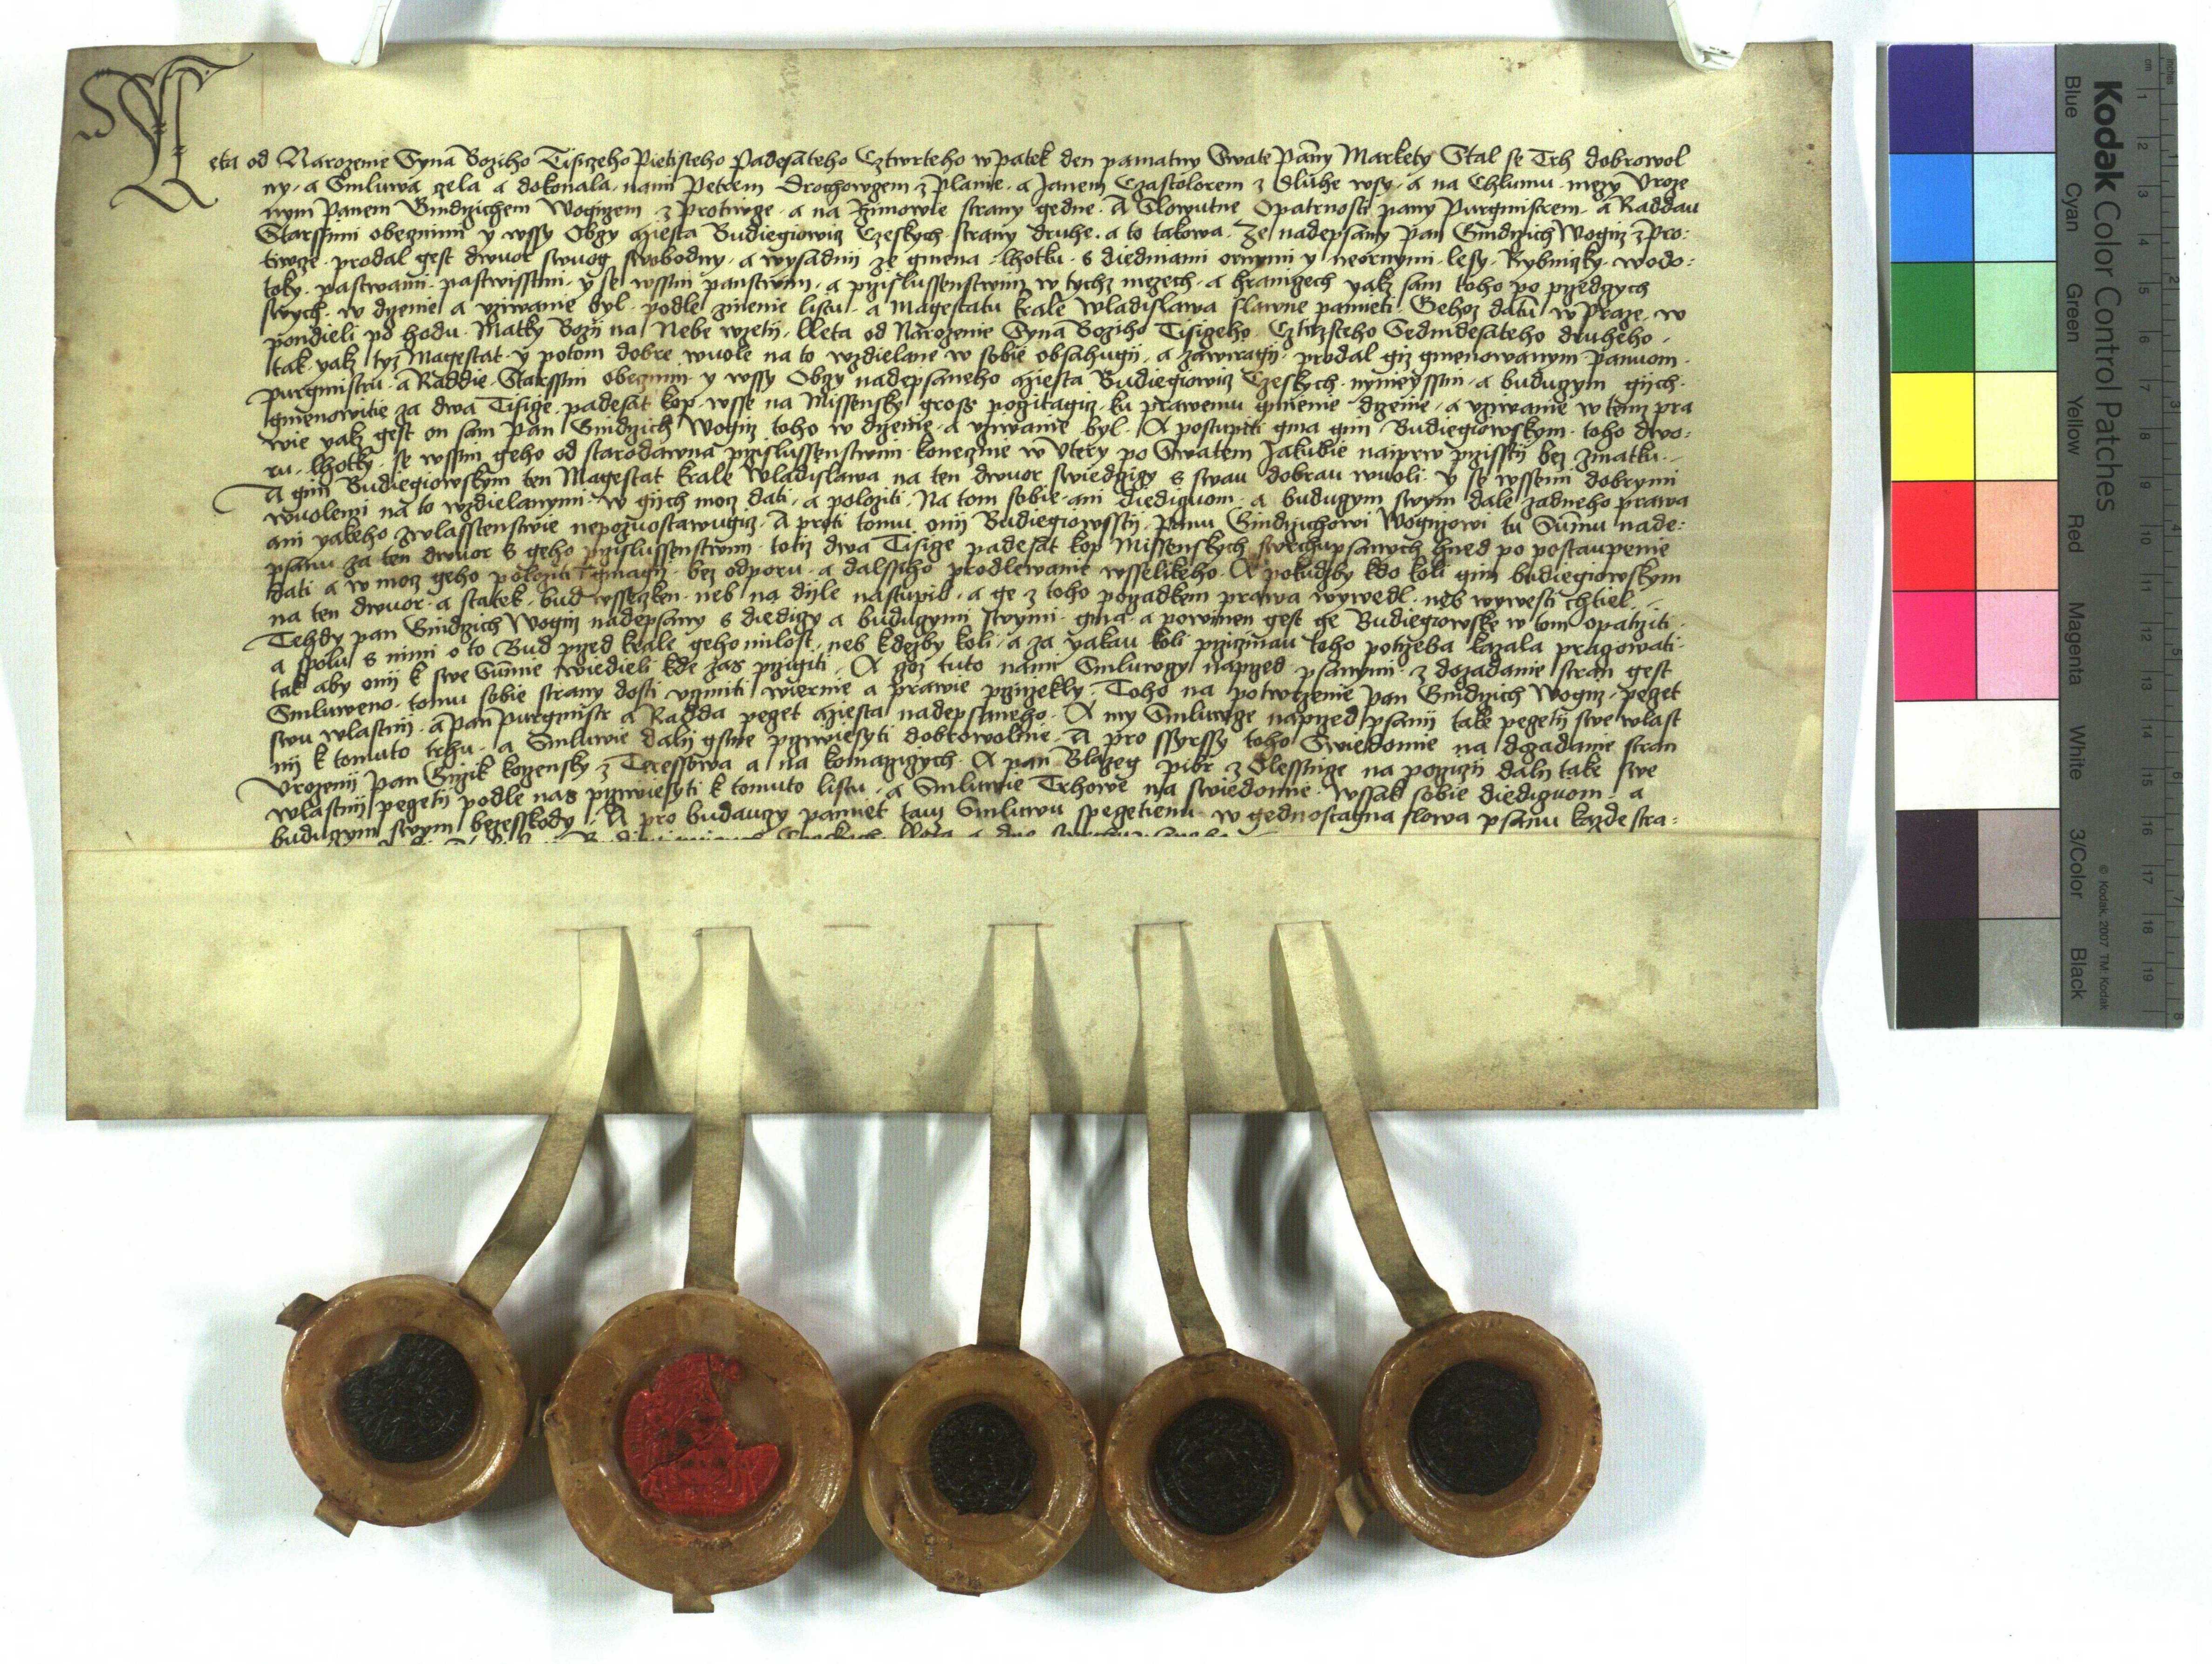 Leta od Narozenie Syna Boziho Tisiczeho Pietisteho Padesateho Cztwrteho w patek den pamatny Swate Panny Markety Stal se Trh dobrowol
ny, a Smluwa gela a dokonala, nami Petrem Drochowgem z Planie, a Janem Czastolorem z dluhe wsy, a na Chlumu, mezy Uroze
nym Panem Gindrzichem Wogirzem z Protiwge, a na Zimowie strany gedne. A Slowutne Opatrnosti pany Purgmistrem, a Raddau
Starssimi obeznimi y wssy Obgy Miesta Budiegiowiz Czeskych, strany druhe, a to takowa. Ze nadepsany pan Gindrzich Wogirz z Pro:
tiwge, prodal gest dwuor swuog swobodny, a wysadnij ze gmena lhotku, s diedinami ornymi y neornymi, lesy, Rybnizky, wodo:
toky, pastwami, pastwisstmi, y se wssim panstwim, a przislussenstwim w tychz mezech, a hranigech yakz sam toho po przedgych
swych, w drzenie a uziwanie byl, podle znenie listu, a Magestatu krale Wladislawa slawne pamieti. Gehoz datum w Praze, w
pondieli po hodu Matky Bozij na Nebe wzetij, lleta od Narozenie Syna Boziho Tisigeho Cztyrsteho Sedmdesateho druheho,
tak yakz tyz Magestat y potom dobre wuole na to wzdielane w sobie obsahugij, a zawiragij, prodal giz gmenowanym Panuom
Purgmistru, a Raddie, Starssim obeznim, y wssy Obgy nadepsaneho Miesta Budiegiowiz Czeskych, nyniegssim, a budugym gijch,
gmenowitie za dwa Tisige padesat kop, wsse na Missensky gross pozitagiz, ku prawemu gmienie drzenie, a uziwanie w temz pra
wie yakz gest on sam Pan Gindrzich Wogirz toho w drzenie, a uziwanie byl. A postupiti gma gim Budiegiowskym toho dwo:
ru, lhotky, se wssim geho od starodawna przislussenstwim, konecznie w Utery po Swatem Jakubie naiprw przisstij bez zmatku.
A gim Budiegiowskym ten Magestat krale Wladislawa na ten dwuor swiedczigy s swau dobrau wuoli, y se wssemi dobrymi
wuolemi na to wzdielanymi, w gijch moz dati, a poloziti, Na tom sobie ani diediguom, a budugym swym dale zadneho prawa
ani yakeho zwlasstenstwie nepozuostawugiz. A proti tomu onij Budiegiowsstij, Panu Gindrzichowi Wogirzowi tu Summu nade:
psanu za ten dwuor s geho przislussenstwim, totiz dwa Tisige padesat kop Missenskych swrchupsanych hned po postaupenie
dati a w moz geho poloziti gmagij, bez odporu, a dalssiho prodlewanie wsselikeho. A pokudzby kdo koli gim budiegiowskym
na ten dwuor, a statek, bud wsseczken, neb na dijle nastupil, a ge z toho porzadkem prawa wywedl, neb wywesti chtiel.
Tehdy pan Gindrzich Wogirz nadepsany s diedigy a budugymi swymi, gma, a powinen gest ge Budiegiowske w tom opatrziti,
a spolu s nimi o to Bud przed krale geho milost, neb kdezby koli, a za yakau koli przigzinau toho potrzeba kazala pragowati,
tak aby onij k swe Summie wiedieli kde zas przigiti. A goz tuto nami Smluwgy naprzed psanymi, z dozadanie stran gest
Smluweno, tomu sobie strany dosti uginiti wiernie a prawie przirzekly. Toho na potwrzenie pan Gindrzich Wogirz peget
swu wlastnij, a Pan Purgmistr a Radda peget Miesta nadepsaneho. A my Smluwge naprzed psanij take pegetij swe wlast
nij k tomuto trhu, a Smluwie dalij gsme przwiesyti dobrowolnie. A pro ssyrssy toho Swiedomie na dozadanie stran
Urozenij Pan Girzik korzensky z Teressowa a na komarzigych. A pan Blazeg pibr z Olesstnige na porzizij dalij take swe
wlastnij pegetij podle nas przwiesyti k tomuto listu, a Smluwie Trhowe na swiedomie, wssak sobie diediguom, a
budugym swym bezesskody. A pro budaugy pamiet tauz Smluwu spegetienu w gednostagna slowa psanu kazde stra: